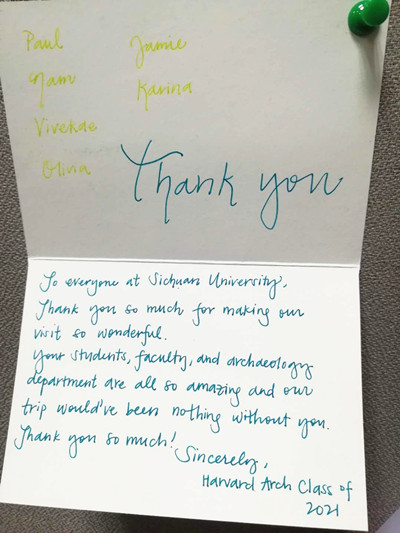 Paul
Jamie
Karina
Olivia
Thank you
To everyone at Sichuan University,
Thank you so much for making our
visit so wonderful.
Your students, faculty, and archaeology
department are all so amazing and our
trip would've been nothing without you.
Thank you so much!
Sincerely,
Harvard Arch Class of
2021